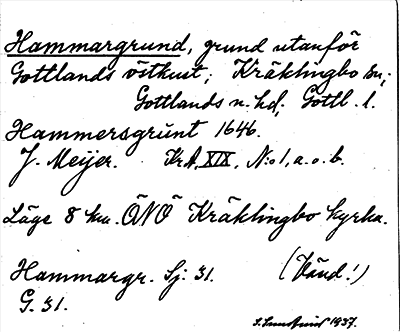 Hammargrund, grund utanför
Gottlands östkust; Kräklingbo sn;
Gottlands n. hd, Gottl. l.
Hammersgrunt 1646.
J. Meijer. Kr A, XIX, N:o 1, a.o.b.
Läge 8 km. ÖNÖ Kräklingbo kyrka.
Hammargr. Sj: 31. (Vänd!)
G. 31.
1937.